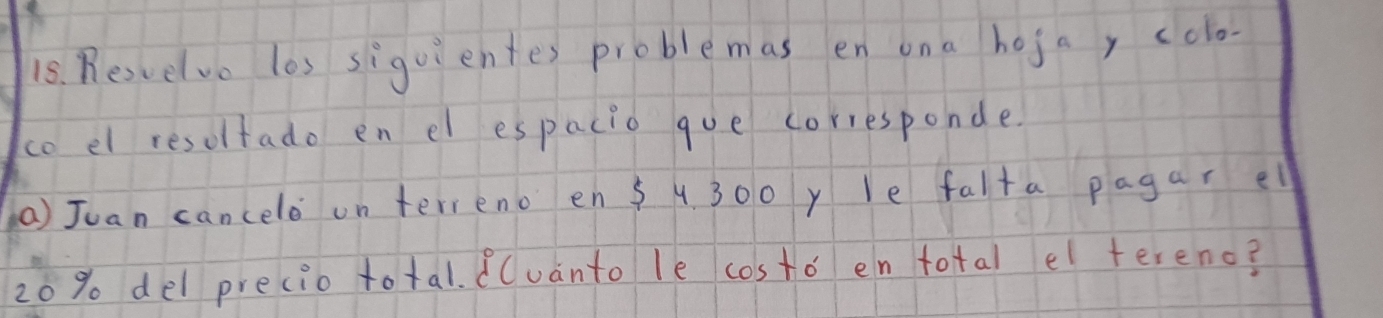 18. Resuelvo los siguientes problemas en una hoja y colo-
co el resultado en el espacio que corresponde.
a) Juan canceló un terreno en $ 4.300 y le falta pagar el
20% del precio total. ¿Cuánto le costó en total el tereno?